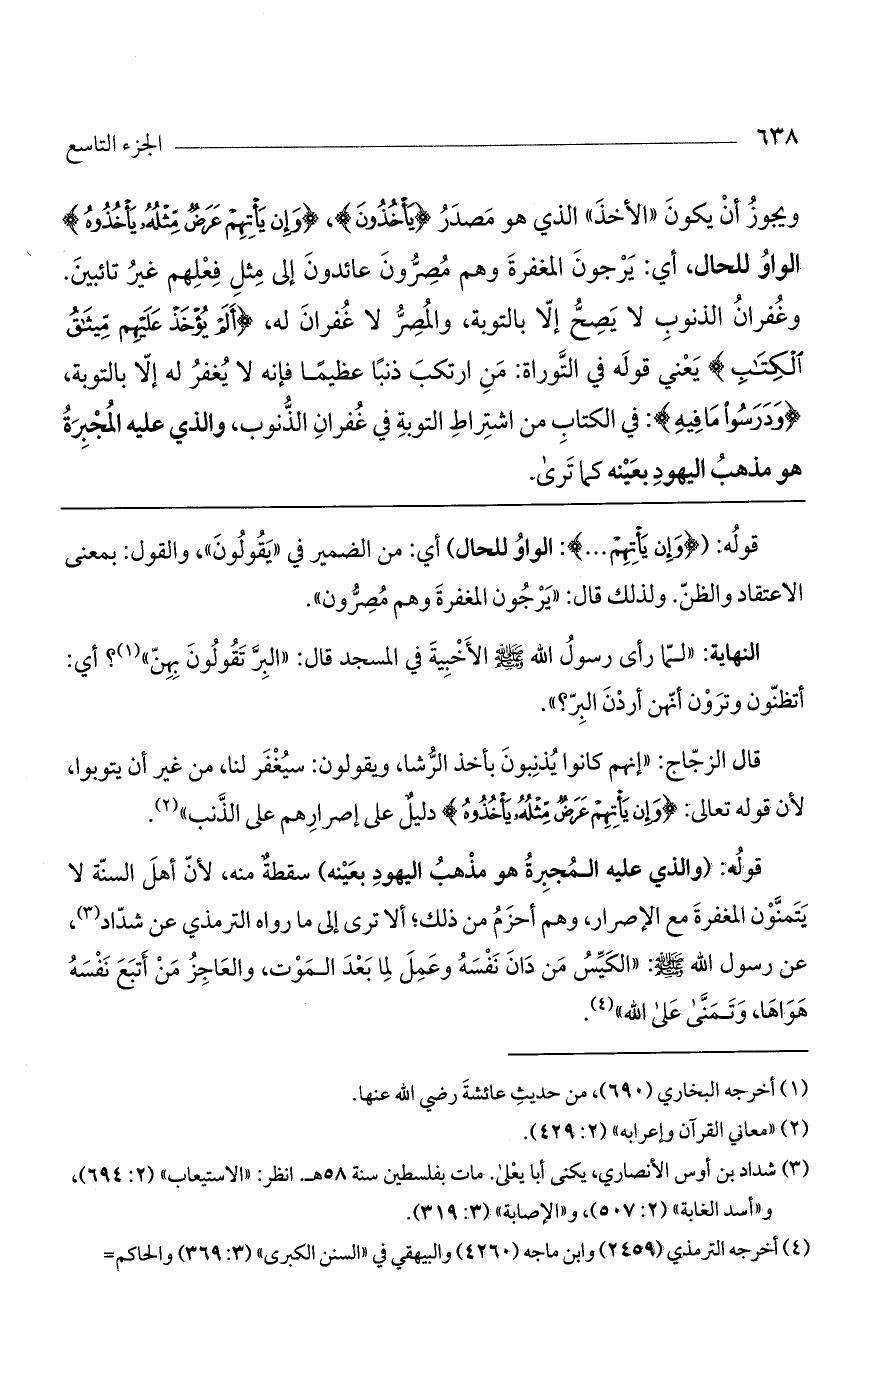 ٦٣٨ الجزء التاسع
ويجوزُ أنْ يكونَ «الأخذَ» الذي هو مَصدَرُ ﴿يَأْخُذُونَ﴾، ﴿وَإِن يَأْتِهِمْ عَرَضٌ مِّثْلُهُۥ يَأْخُذُوهُ﴾
الواوُ للحال، أي: يَرْجونَ المغفرةَ وهم مُصِرُّونَ عائدونَ إلى مِثلِ فِعْلِهم غيرُ تائبينَ.
وغُفرانُ الذنوبِ لا يَصِحُّ إلّا بالتوبة، والمُصِرُّ لا غُفرانَ له، ﴿أَلَمْ يُؤْخَذْ عَلَيْهِم مِّيثَٰقُ
ٱلْكِتَٰبِ﴾ يَعْني قولَه في التَّوراة: مَنِ ارتكبَ ذنبًا عظيمًا فإنه لا يُغفرُ له إلّا بالتوبة،
﴿وَدَرَسُوا۟ مَا فِيهِ﴾: في الكتابِ من اشتِراطِ التوبةِ في غُفرانِ الذُّنوب، والذي عليه المُجْبِرَةُ
هو مذهبُ اليهودِ بعَيْنه كما تَرىٰ.
قولُه: (﴿وَإِن يَأْتِهِمْ...﴾: الواوُ للحال) أي: من الضمير في «يَقُولُونَ»، والقول: بمعنى
الاعتقاد والظنّ. ولذلك قال: «يَرْجُون المغفرةَ وهم مُصِرُّون».
النهاية: «لـمّا رأى رسولُ الله ﷺ الأَخْبِيةَ في المسجد قال: «البِرَّ تَقُولُونَ بِهِنّ»(١)؟ أي:
أتظنّون وترَوْن أنّهن أردْنَ البِرّ؟».
قال الزجّاج: «إنهم كانوا يُذنِبونَ بأخذ الرُّشا، ويقولون: سيُغْفَر لنا، من غير أن يتوبوا،
لأن قوله تعالى: ﴿وَإِن يَأْتِهِمْ عَرَضٌ مِّثْلُهُۥ يَأْخُذُوهُ﴾ دليلٌ على إصرارِهم على الذَّنب»(٢).
قولُه: (والذي عليه الـمُجبِرةُ هو مذْهبُ اليهودِ بعَيْنه) سقطةٌ منه، لأنّ أهلَ السنّة لا
يَتَمنَّوْن المغفرةَ مع الإصرار، وهم أحزَمُ من ذلك؛ ألا ترى إلى ما رواه الترمذي عن شدّاد(٣)،
عن رسول الله ﷺ: «الكَيِّسُ مَن دَانَ نَفْسَهُ وعَمِلَ لِما بَعْدَ الـمَوْت، والعَاجِزُ مَنْ أَتبَعَ نَفْسَهُ
هَوَاهَا، وَتَـمَنَّىٰ عَلىٰ الله»(٤).
(١) أخرجه البخاري (٦٩٠)، من حديثِ عائشةَ رضي الله عنها.
(٢) «معاني القرآن وإعرابه» (٢: ٤٢٩).
(٣) شداد بن أوس الأنصاري، يكنى أبا يعْلىٰ. مات بفلسطين سنة ٥٨هـ. انظر: «الاستيعاب» (٢: ٦٩٤)،
و«أسد الغابة» (٢: ٥٠٧)، و«الإصابة» (٣: ٣١٩).
(٤) أخرجه الترمذي (٢٤٥٩) وابن ماجه (٤٢٦٠) والبيهقي في «السنن الكبرى» (٣: ٣٦٩) والحاكم=